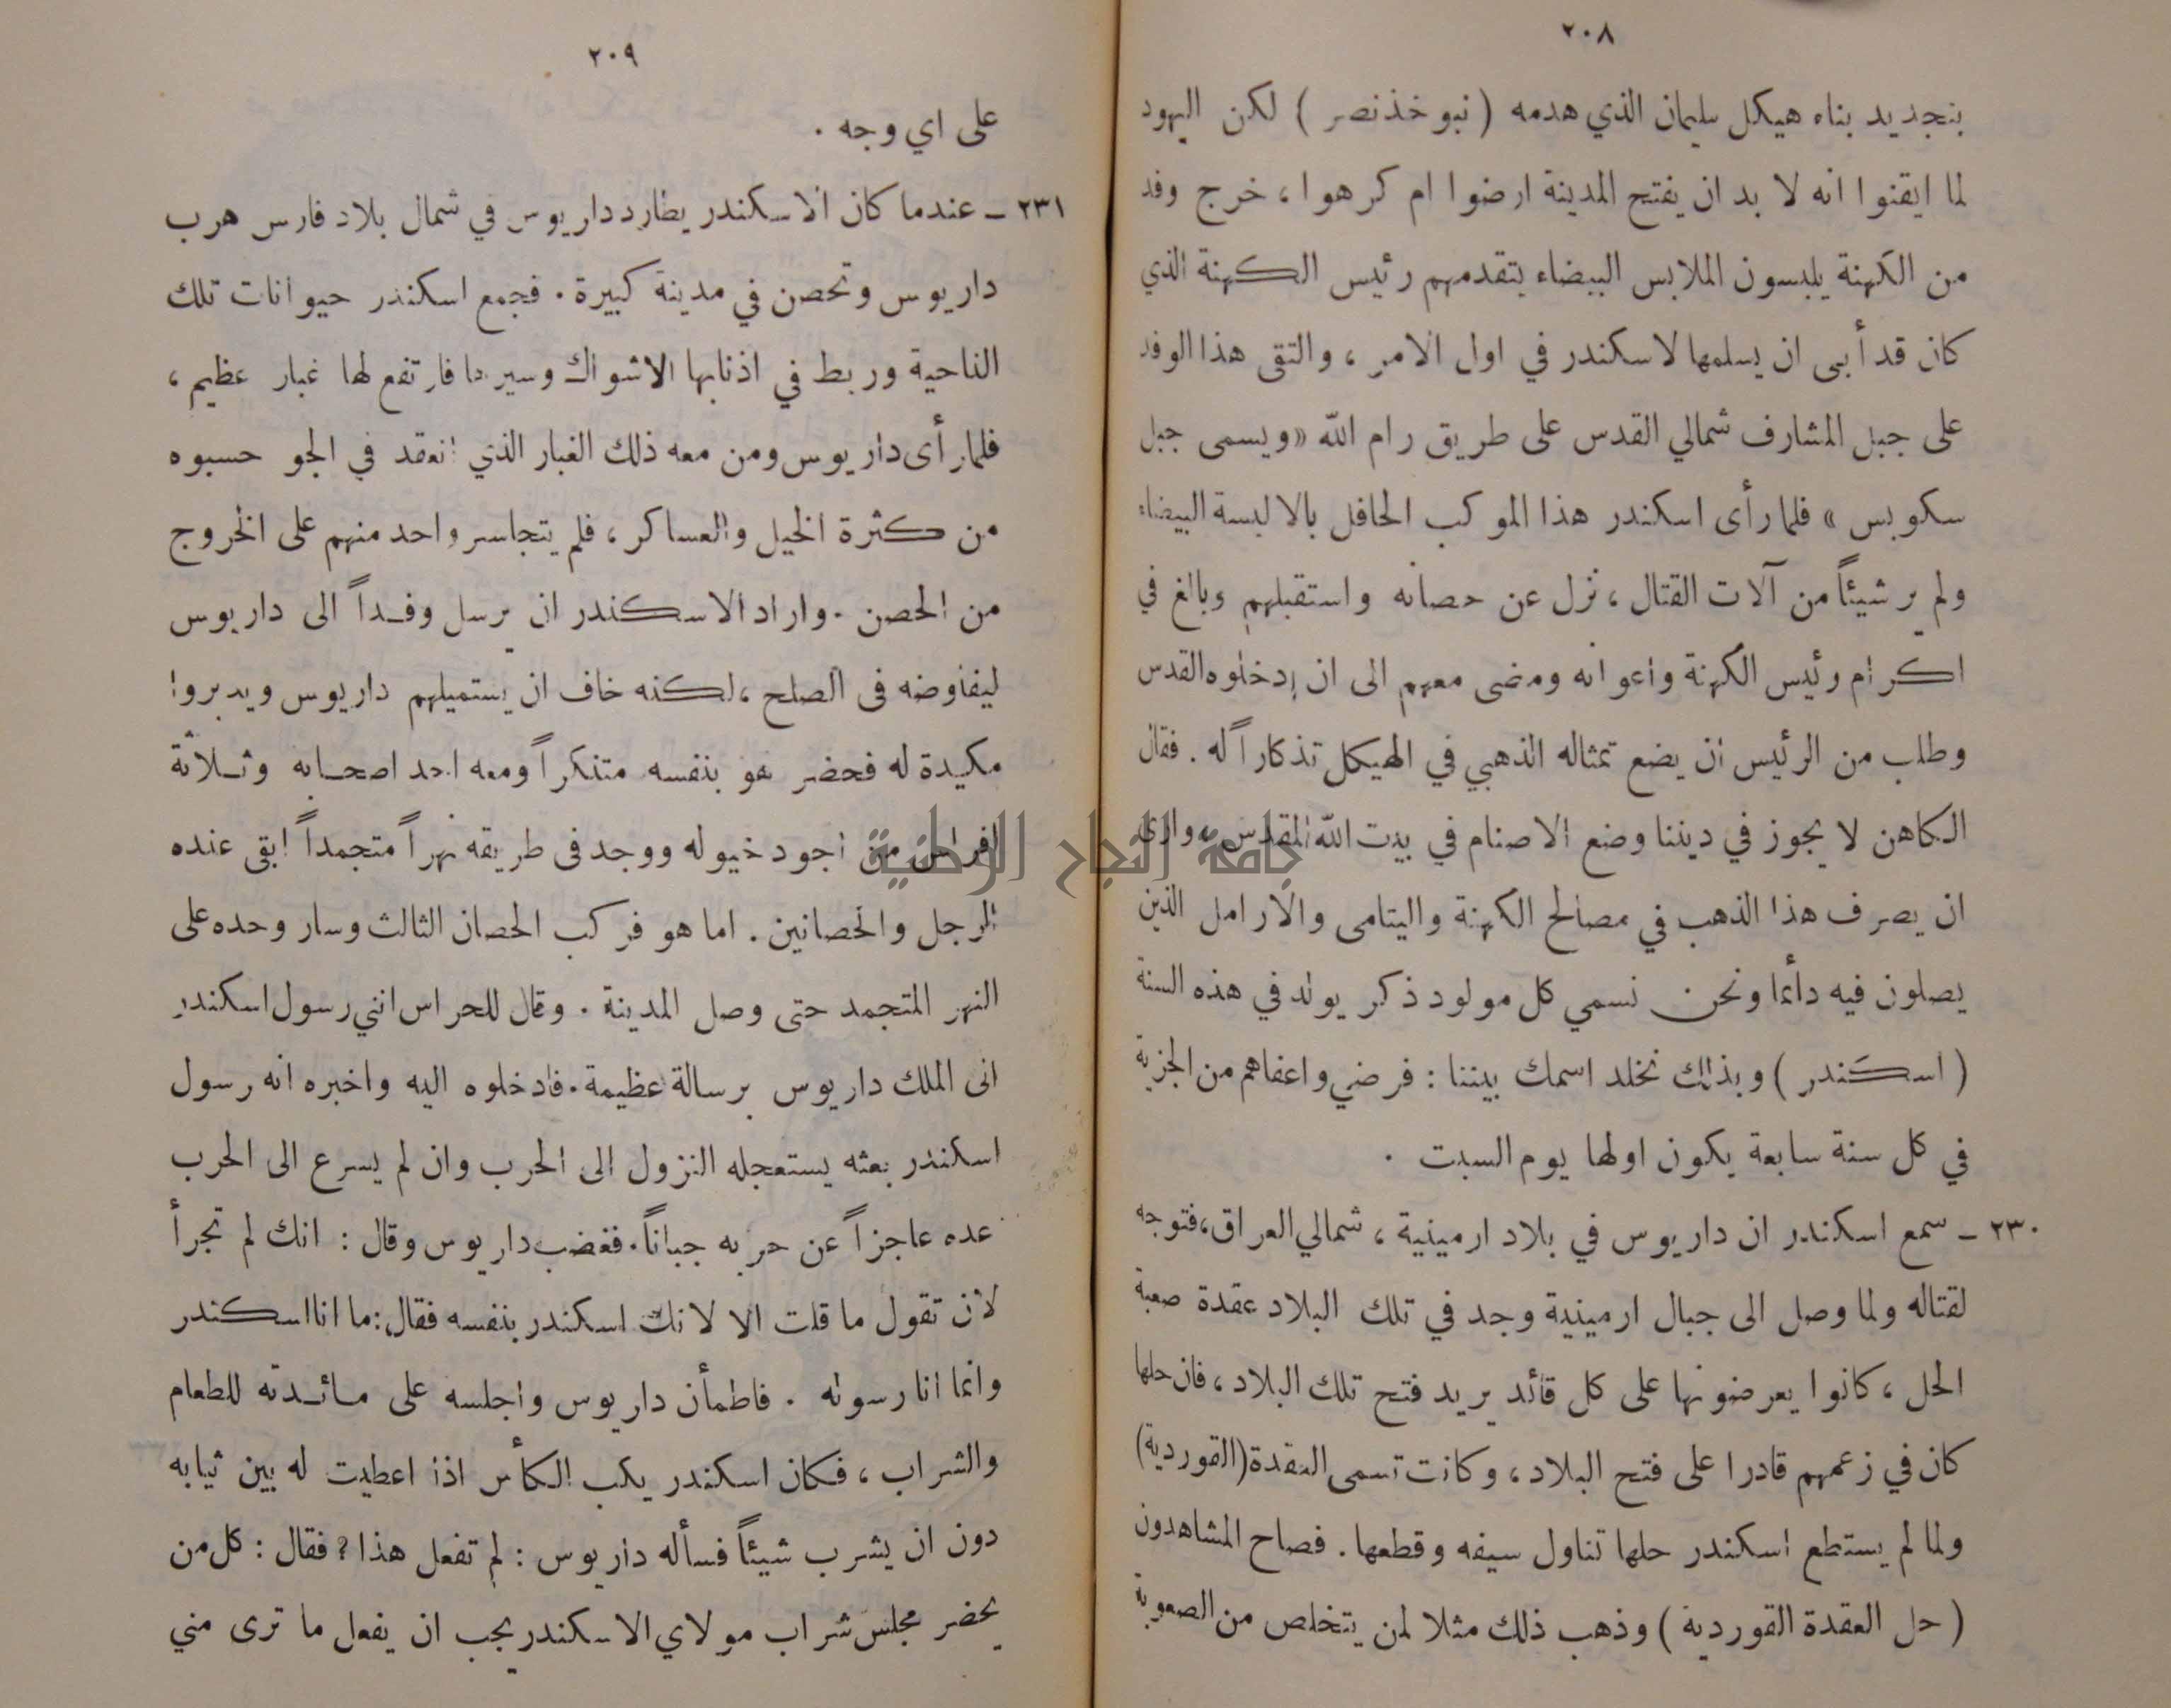 ٢٠٨
بتجديد بناه هيكل سليمان الذي هدمه ( نبوخذنصر ) لكن اليهود
لما ايقنوا انه لا بد ان يفتح المدينة ارضوا ام كرهوا ، خرج وفد
من الكهنة يلبسون الملابس البيضاء يتقدمهم رئيس الكهنة الذي
كان قد أبى ان يسلمها لاسكندر في اول الامر ، والتقى هذا الوفد
على جبل المشارف شمالي القدس على طريق رام الله «ويسمى جبل
سكوبس » فلما رأى اسكندر هذا الموكب الحافل بالالبسة البيضاء
ولم ير شيئاً من آلات القتال ، نزل عن حصانه واستقبلهم وبالغ في
اكرام رئيس الكهنة واعوانه ومضى معهم الى ان إدخلوه القدس
وطلب من الرئيس ان يضع تمثاله الذهبي في الهيكل تذكاراً له . فقال
الكاهن لا يجوز في ديننا وضع الاصنام في بيت الله المقدس وارى
ان يصرف هذا الذهب في مصالح الكهنة واليتامى والارامل الذين
يصلون فيه دائما ونحن نسمي كل مولود ذكر يولد في هذه السنة
( اسكندر ) وبذلك نخلد اسمك بيننا : فرضي واعفاهم من الجزية
في كل سنة سابعة يكون اولها يوم السبت .
٢٣٠ - سمع اسكندر ان داريوس في بلاد ارمينية ، شمالي العراق، فتوجه
لقتاله ولما وصل الى جبال ارمينية وجد في تلك البلاد عقدة صعبة
الحل ، كانوا يعرضونها على كل قائد يريد فتح تلك البلاد ، فان حلها
كان في زعمهم قادرا على فتح البلاد ، وكانت تسمى العقدة (القوردية)
ولما لم يستطع اسكندر حلها تناول سيفه وقطعها . فصاح المشاهدون
( حل العقدة القوردية ) وذهب ذلك مثلا لمن يتخلص من الصعوبة
٢٠٩
على اي وجه .
٢٣١ - عندما كان الاسكندر يطارد داريوس في شمال بلاد فارس هرب
داريوس وتحصن في مدينة كبيرة . فجمع اسكندر حيوانات تلك
الناحية وربط في اذنابها الاشواك وسيرها فارتفع لها غبار عظيم ،
فلما رأى داريوس ومن معه ذلك الغبار الذي انعقد في الجو حسبوه
من كثرة الخيل والعساكر ، فلم يتجاسر واحد منهم على الخروج
من الحصن . واراد الاسكندر ان يرسل وفداً الى داريوس
ليفاوضه في الصلح ، لكنه خاف ان يستميلهم داريوس ويدبروا
مكيدة له فحضر هو بنفسه متنكراً ومعه احد اصحابه وثلاثة
افراس من اجود خيوله ووجد في طريقه نهراً متجمداً ابقى عنده
الرجل والحصانين . اما هو فركب الحصان الثالث وسار وحده على
النهر المتجمد حتى وصل المدينة . وقال للحراس انني رسول اسكندر
الى الملك داريوس برسالة عظيمة . فادخلوه اليه واخبره انه رسول
اسكندر بعثه يستعجله النزول الى الحرب وان لم يسرع الى الحرب
عده عاجزاً عن حربه جباناً . فغضب داريوس وقال : انك لم تجرأ
لأن تقول ما قلت الا لانك اسكندر بنفسه فقال : ما انا اسكندر
وانما انا رسوله . فاطمأن داريوس واجلسه على مائدته للطعام
والشراب ، فكان اسكندر يكب الكأس اذا اعطيت له بين ثيابه
دون ان يشرب شيئاً فسأله داريوس : لم تفعل هذا ؟ فقال : كل من
يحضر مجلس شراب مولاي الاسكندر يجب ان يفعل ما ترى مني
جامعة النجاح الوطنية